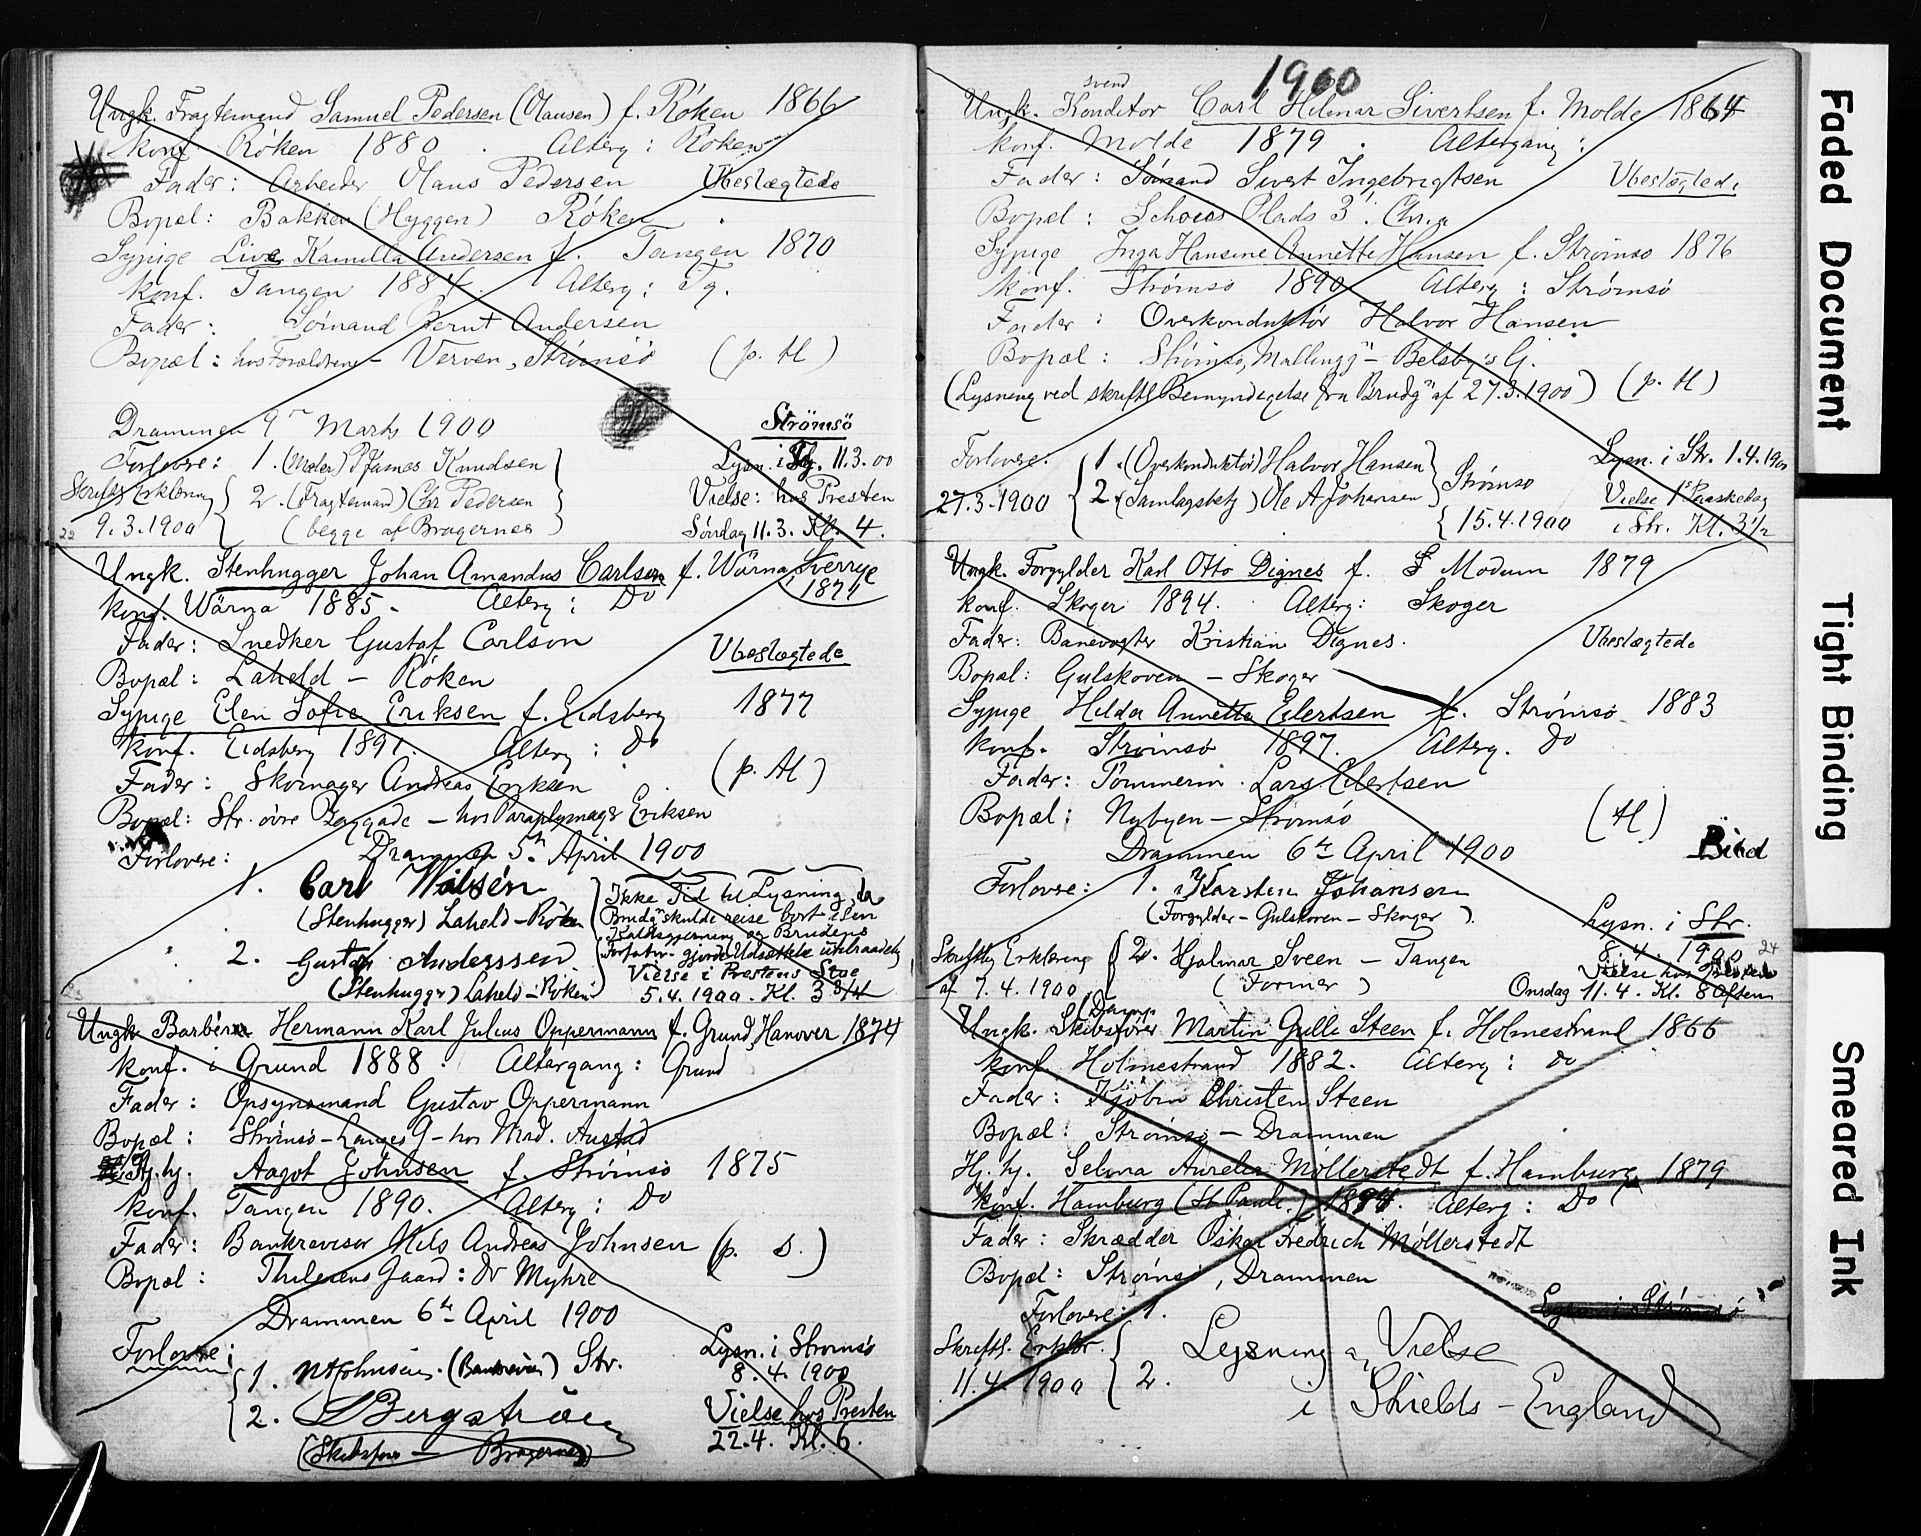 Ungk. Fragtemand Samuel Pedersen (Olausen) f. Röken 1866
konf Röken 1880. Alterg: Röken
Fader: Arbeider Olaus Pedersen Ubeslægtede
Bopæl: Bakken (Hyggen) Röken
Sypige Live Kamilla Andersen f. Tangen 1870
konf. Tangen 1884. Alterg: Tg.
Fader: Sömand Bernt Andersen
Bopæl: hos Forældrene - Verven, Strömsö (p. H)
Drammen 9de Marts 1900 Strömsö
Forlovere: 1. (Maler) James Knudsen Lysn. i 11.3.00
Skriftl. Erklæring 2. (Fragtemand) Chr Pedersen Vielse: hos Presten
9.3.1900 (begge af Bragernes) Söndag 11.3. Kl. 4.
22
Ungk. Stenhugger Johan Amandus Carlsen f. Wärna, Sverrige
1871
konf. Wärna 1885. Alterg: Do
Fader: Snedker Gustaf Carlson
Ubeslægtede
Bopæl: Laheld - Röken
Sypige Elen Sofie Eriksen f. Eidsberg 1877
konf. Eidsberg 1891. Alterg: do
Fader: Skomager Andreas Eriksen (p. H)
Bopæl: Str. övre Baggade - hos Paraplymager Eriksen
Drammen 5te April 1900
Forlovere:
1. Carl Nilsén
(Stenhugger) Laheld - Röken
2. Gustaf Anderssen
(Stenhugger) Laheld - Röken
Ikke Tid til Lysning, da
Brudg. skulde reise bort i sin
og Brudens
gjorde Udsættelse utilraadelig
Vielse i Prestens Stue
5.4.1900. Kl. 3 3/4
23
Ungk. Barbér Hermann Karl Julius Oppermann f. Grund, Hanover 1874
konf. i Grund 1888. Altergang: Grund
Fader: Opsynsmand Gustav Oppermann
Bopæl: Strömsö - Langes G - hos Mad. Austad
Hj.hj. Aagot Johnsen f. Strömsö 1875
konf. Tangen 1890. Alterg: Do
Fader: Bankrevisor Nils Andreas Johnsen (p. S.)
Bopæl: Thilesens Gaard: Dr Myhre
Drammen 6te April 1900
Forlovere: Lysn. i Strömsö
1. N A Johnsen. (Bankrevisor) Str. 8.4.1900
2. Bergström Vielse hos Presten
(Skibsförer - Bragernes) 22.4. Kl. 6.
1900
Ungk. Konditorsvend Carl Hilmar Sivertsen f. Molde 1864
konf. Molde 1879. Altergang:
Fader: Sömand Sivert Ingebrigtsen Ubeslægtede
Bopæl: Schous Plads 3. Chr.a
Sypige Inga Hansine Annette Hansen f. Strömsö 1876
konf. Strömsö 1890 Alterg: Strömsö
Fader: Overkonduktör Halvor Hansen
Bopæl: Strömsö, - G.
(Lysning ved skriftl Bemyndigelse fra Brudg. af 27.3.1900) (p. H)
Forlovere. 1. (Overkonduktör) Halvor Hansen Lysn. i Str. 1.4.1900
27.3.1900 2. (Samlagsbetj) Ole A Johansen Strömsö Vielse 1st Paaskedag
15.4.1900 i Str. Kl. 3 1/2
Ungk. Forgylder Karl Otto Dignes f. Modum 1879
konf. Skoger 1894. Alterg: Skoger
Fader: Banevogter Kristian Dignes. Ubeslægtede
Bopæl: Gulskoven - Skoger
Sypige Hilda Annette Eilertsen f. Strömsö 1883
konf. Strömsö 1897. Alterg. do
Fader: Tömmerm. Lars Eilertsen
Bopæl: Nybyen - Strömsö (H)
Drammen 6te April 1900
Forlovere: 1. Karsten Johansen
(Forgylder - Gulskoven - Skoger). Lysn. i Str.
Skriftlig Erklæring 2. Hjalmar Sveen - Tangen 8.4.1900 24
af 7.4.1900 (Former) Vielse hos Presten
Onsdag 11.4. Kl. 8 Aften
Ungk. Damp Skibsförer Martin Gulli Steen f. Holmestrand 1866
konf. Holmestrand 1882. Alterg: do
Fader: Kjöbm Christen Steen
Bopæl: Strömsö - Drammen
Hj.hj. Selma Aurelia Möllerstedt f. Hamburg 1879
konf. Hamburg (St. Pauli.) 1894. Alterg: Do
Fader: Skrædder Oskar Fredrich Möllerstedt
Bopæl: Strömsö, Drammen
Lysn i Strömsö
Forlovere: 1.
Skriftl. Erklær. Lysning og Vielse
11.4.1900 2.
i Shields - England
Faded Document
Tight Binding
Smeared Ink